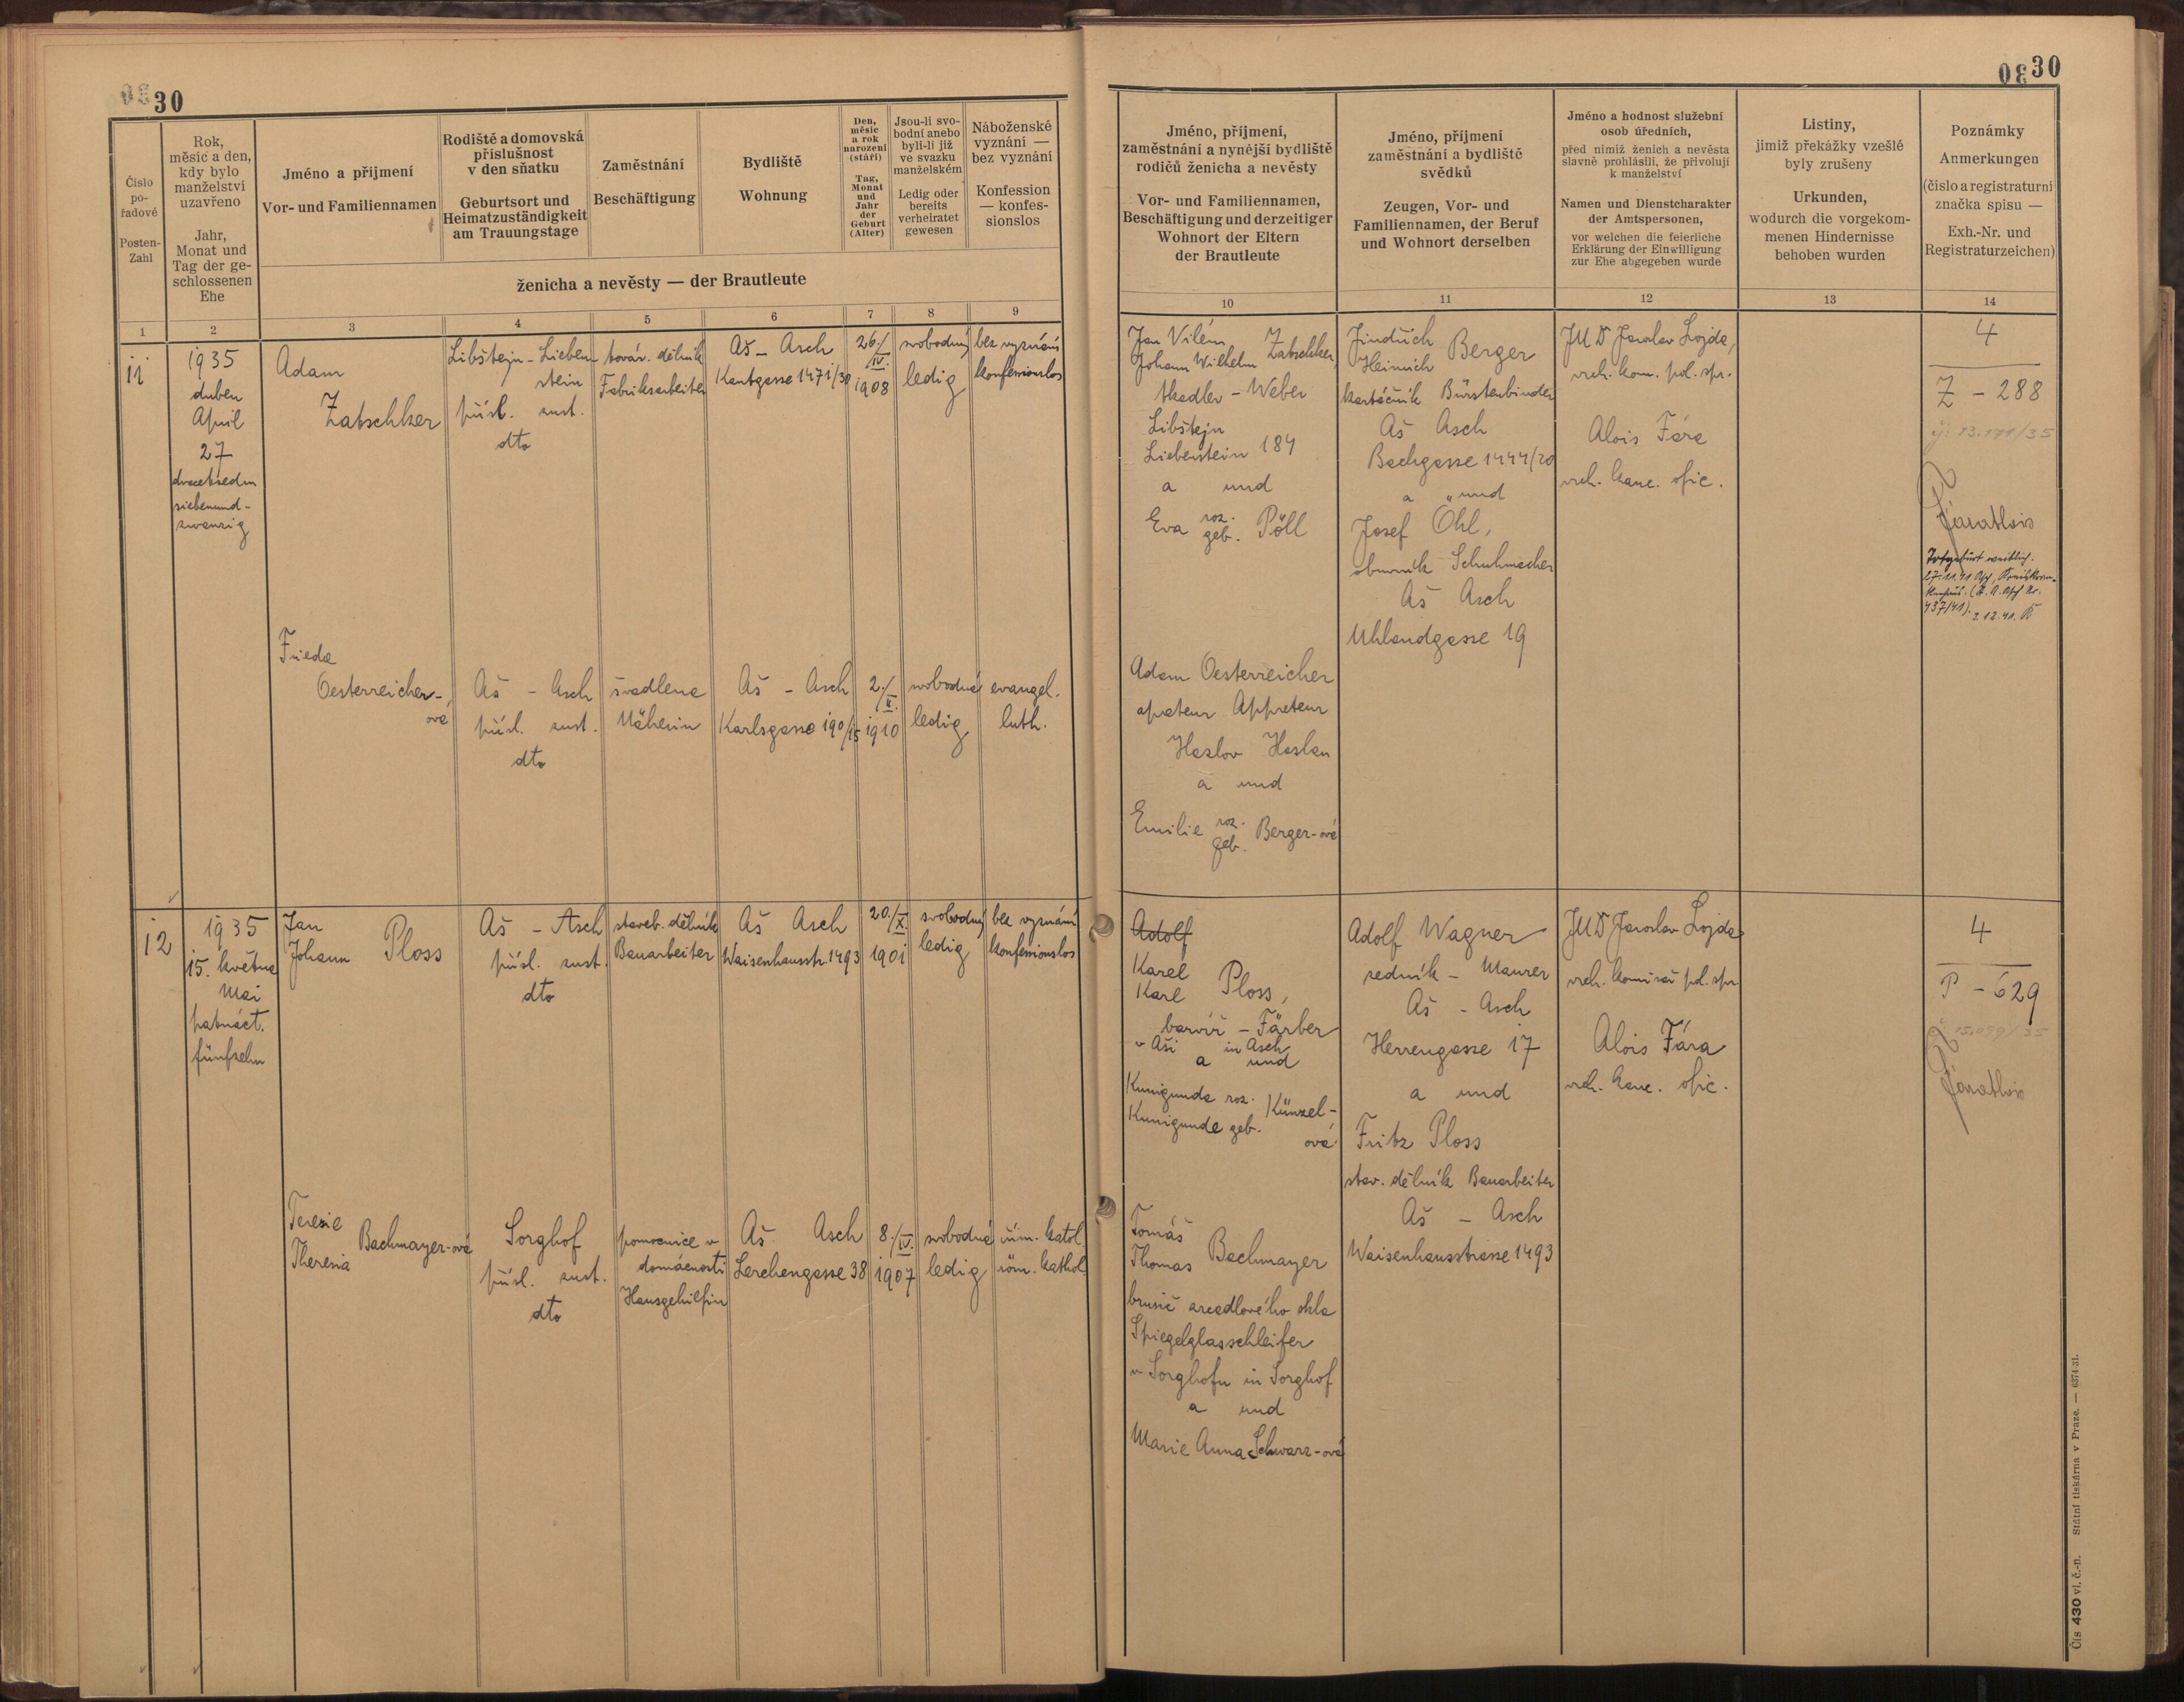 30
30
Číslo
po-
řadové
Posten-
Zahl
Rok,
měsíc a den,
kdy bylo
manželství
uzavřeno
Jahr,
Monat und
Tag der ge-
schlossenen
Ehe
Jméno a příjmení
Vor- und Familiennamen
Rodiště a domovská
příslušnost
v den sňatku
Geburtsort und
Heimatzuständigkeit
am Trauungstage
Zaměstnání
Beschäftigung
Bydliště
Wohnung
Den,
měsíc
a rok
narození
(stáří)
Tag,
Monat
und
Jahr
der
Geburt
(Alter)
Jsou-li svo-
bodni anebo
byli-li již
ve svazku
manželském
Ledig oder
bereits
verheiratet
gewesen
Náboženské
vyznání —
bez vyznání
Konfession
— konfes-
sionslos
ženicha a nevěsty — der Brautleute
1
2
3
4
5
6
7
8
9
11
1935
duben
April
27
dvacetsedm
siebenund-
zwanzig
Adam
Zatschker
Libštejn - Lieben-
stein
přísl. zust.
dto
továr. dělník
Fabriksarbeiter
Aš - Asch
Kantgasse 1471/30
26./
IV.
1908
svobodný
ledig
bez vyznání
konfessionslos
Frieda
Oesterreicher-
ová
Aš - Asch
přísl. zust.
dto
švadlena
Näherin
Aš - Asch
Karlsgasse 190/15
2./
II.
1910
svobodná
ledig
evangel.
luth.
12
1935
15. května
Mai
patnáct.
fünfzehn
Jan
Johann Ploss
Aš - Asch
přísl. zust.
dto
staveb. dělník
Bauarbeiter
Aš Asch
Waisenhausstr. 1493
20./X.
1901
svobodný
ledig
bez vyznání
konfessionslos
Terezie
Theresia Bachmayer-ová
Sorghof
přísl. zust.
dto
pomocnice v
domácnosti
Hausgehilfin
Aš Asch
Lerchengasse 38
8./IV.
1907
svobodná
ledig
řím. katol.
röm. kathol.
30
30
Jméno, příjmení,
zaměstnání a nynější bydliště
rodičů ženicha a nevěsty
Vor- und Familiennamen,
Beschäftigung und derzeitiger
Wohnort der Eltern
der Brautleute
Jméno, příjmení
zaměstnání a bydliště
svědků
Zeugen, Vor- und
Familiennamen, der Beruf
und Wohnort derselben
Jméno a hodnost služební
osob úředních,
před nimiž ženich a nevěsta
slavně prohlásili, že přivolují
k manželství
Namen und Dienstcharakter
der Amtspersonen,
vor welchen die feierliche
Erklärung der Einwilligung
zur Ehe abgegeben wurde
Listiny,
jimiž překážky vzešlé
byly zrušeny
Urkunden,
wodurch die vorgekom-
menen Hindernisse
behoben wurden
Poznámky
Anmerkungen
(číslo a registraturní
značka spisu —
Exh.-Nr. und
Registraturzeichen)
10
11
12
13
14
Jan Vilém
Johann Wilhelm Zatschker,
tkadlec - Weber
Libštejn
Liebenstein 184
a und
Eva roz. geb. Pöll
Jindřich
Heinrich Berger
kartáčník Bürstenbinder
Aš Asch
Bachgasse 1444/20
a und
Josef Öhl,
obuvník Schuhmacher
Aš Asch
Uhlandgasse 19
JUD Jaroslav Lojda,
vrch. kom. pol. spr.
Alois Fára
vrch. kanc. ofic.
4
Z - 288
13.171/35
Fára Alois
Totgeburt weiblich.
27.11.41 Asch,
437/41). 3.12.41.
Adam Oesterreicher
apreteur Appreteur
Hazlov Haslau
a und
Emilie roz. geb. Berger-ová
Adolf
Karel
Karl Ploss,
barvíř - Färber
v Aši in Asch
a und
Kunigunda roz. Künzel-
Kunigunde geb. ová
Adolf Wagner
zedník - Maurer
Aš - Asch
Herrengasse 17
a und
Fritz Ploss
stav. dělník Bauarbeiter
Aš - Asch
Waisenhausstrasse 1493
JUD Jaroslav Lojda
vrch. komisař pol. spr.
Alois Fára
vrch. kanc. ofic.
4
P - 629
15.099/35
Fára Alois
Tomáš
Thomas Bachmayer
brusič zrcadlového skla
Spiegelglasschleifer
v Sorghofu in Sorghof
a und
Marie Anna Schwarz-ová
Čís 430 vl. č.-n. Státní tiskárna v Praze. — 6374-31.